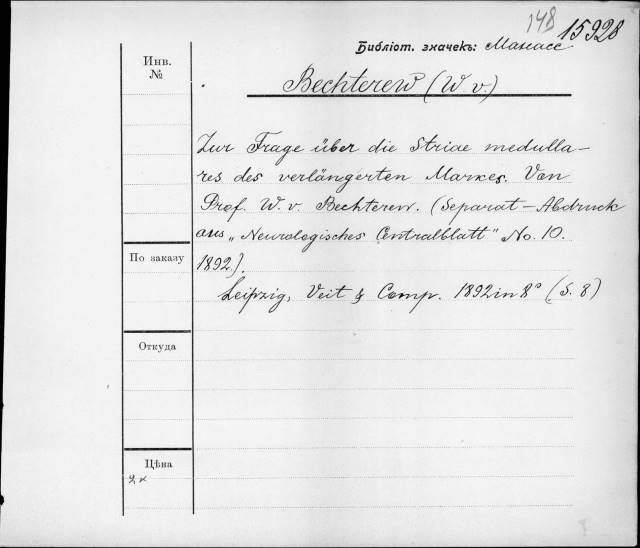 148
15928
Библіот. значекъ: Манасс
Инв.
№
Bechterew (W. v.)
Zur Frage über die Striae medulla-
res des verlängerten Markes. Von
Prof. W. v. Bechterew. (Separat-Abdruck
aus „Neurologisches Centralblatt" No. 10.
1892).
По заказу
Leipzig, Veit & Comp. 1892 in 8° (S. 8)
Откуда
Цѣна
2 к